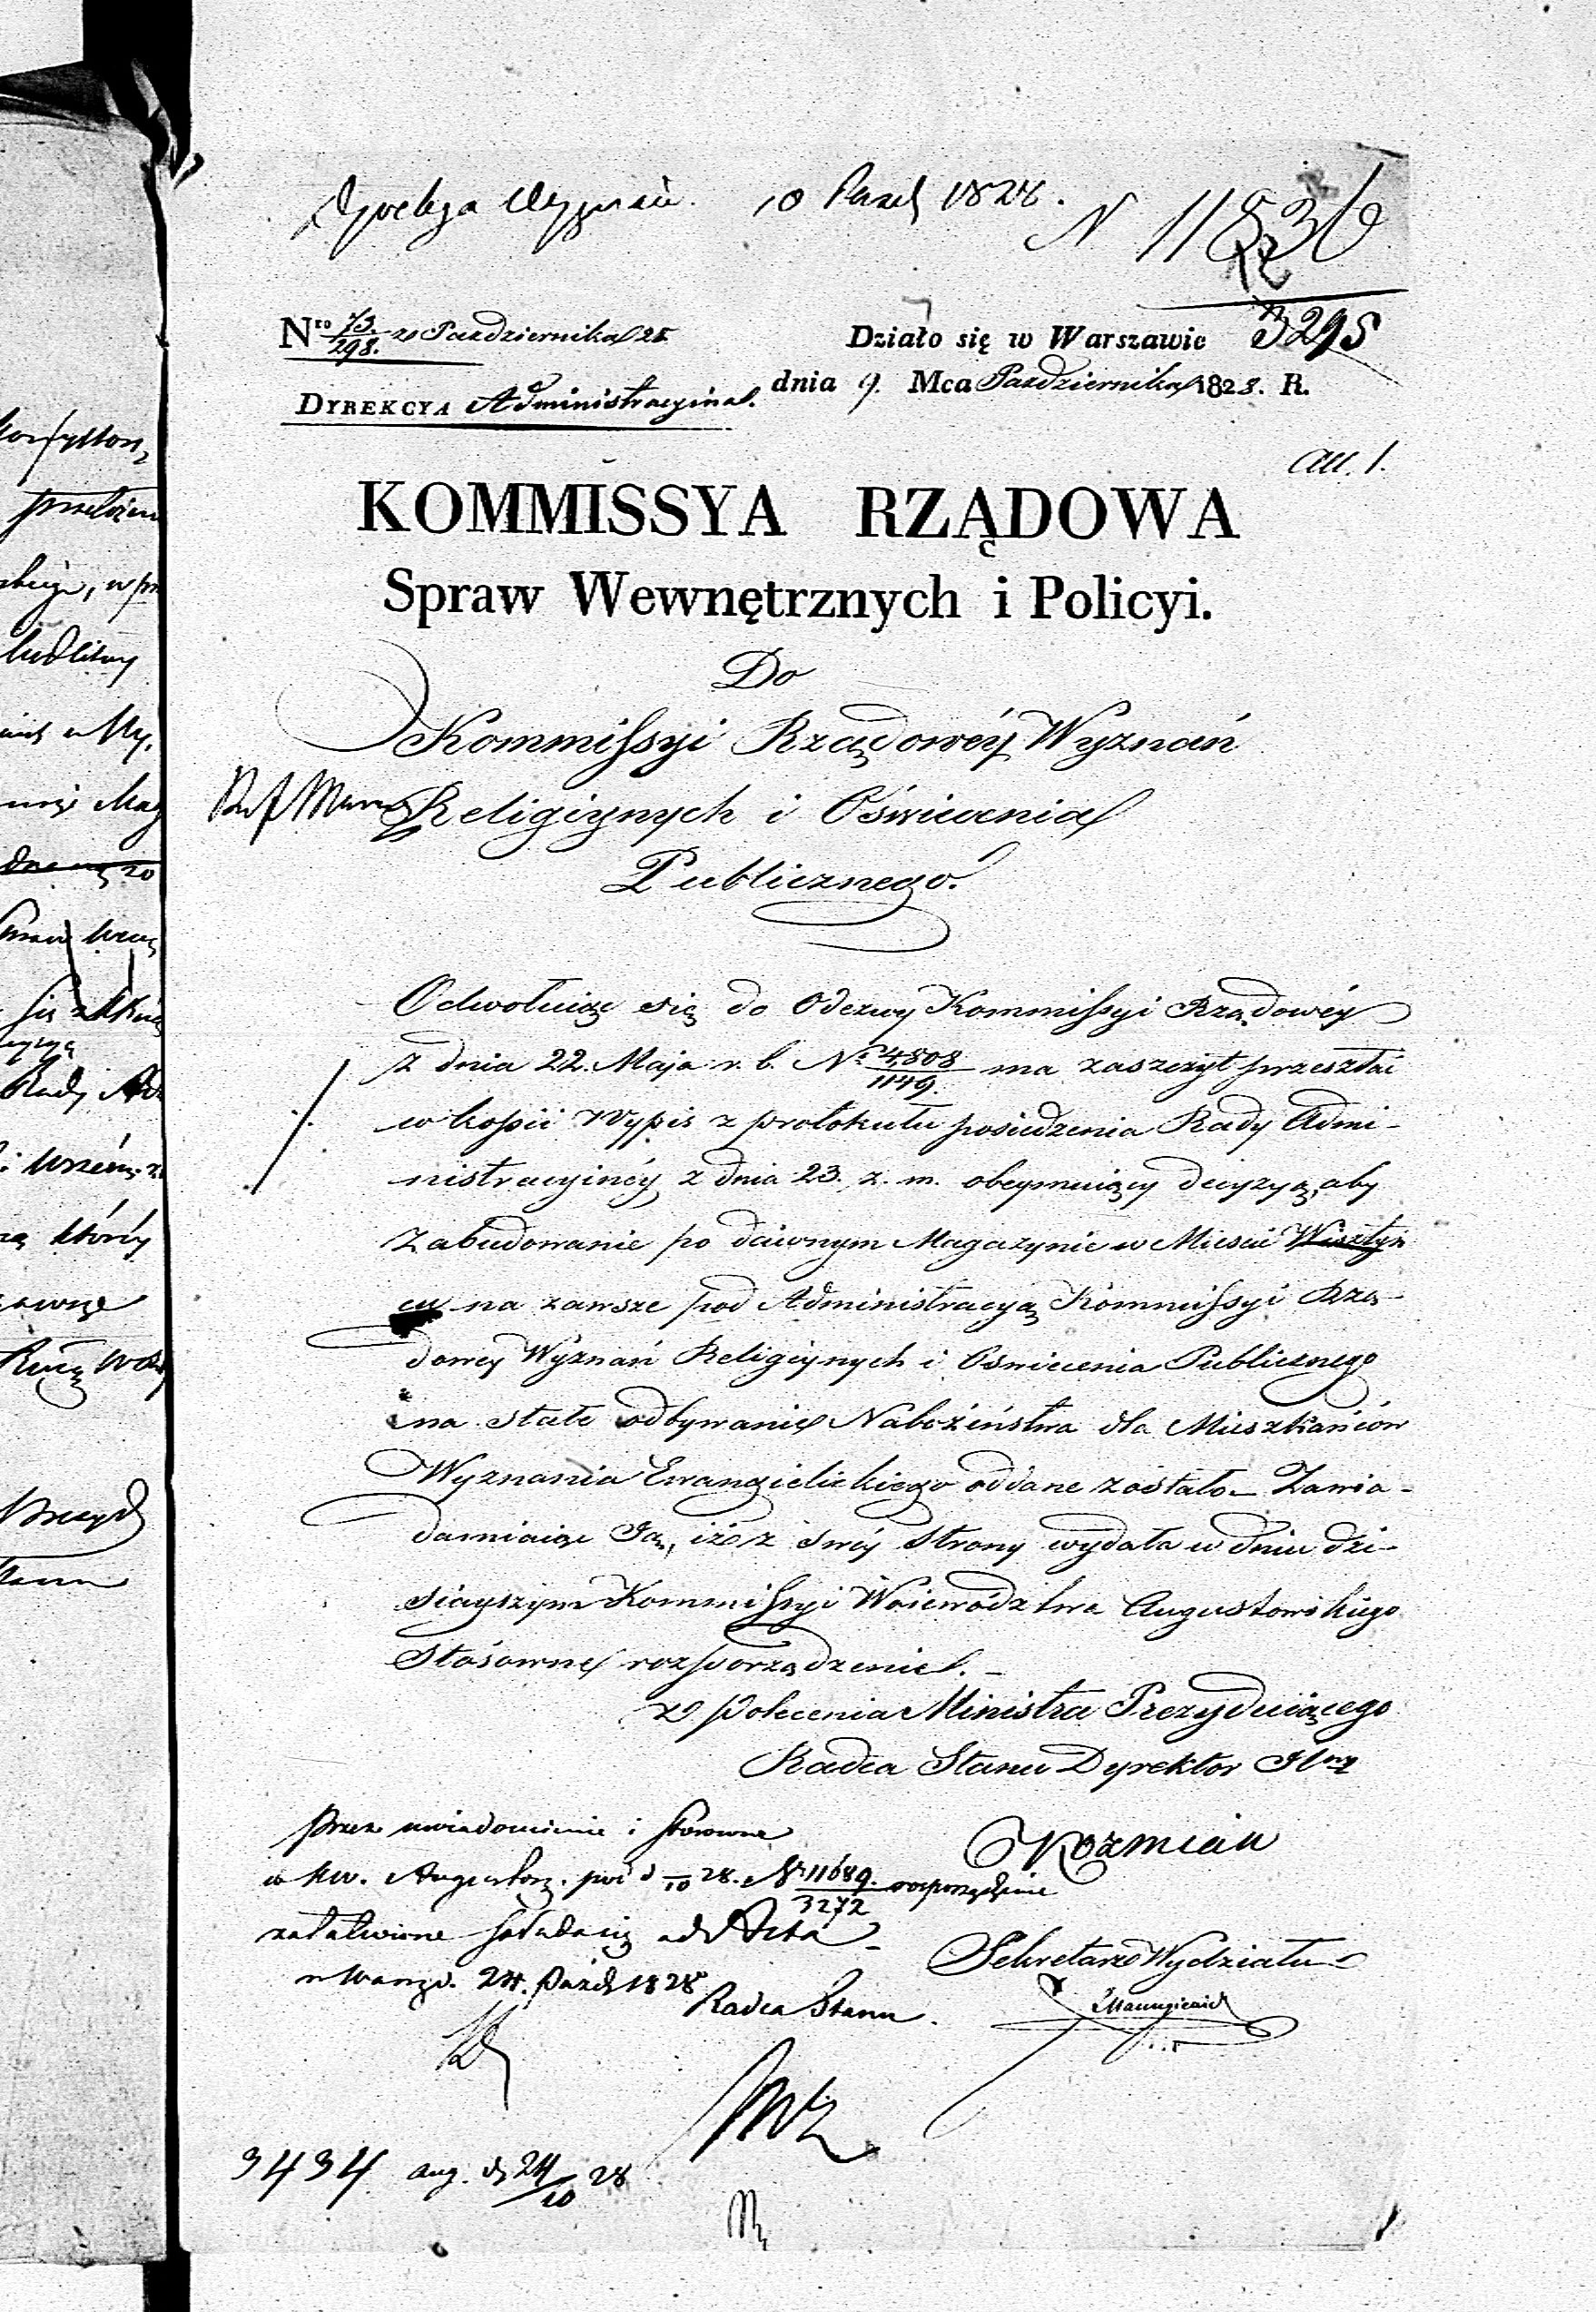 10 1828.
N 11836
3295
Nro 73/298. z Października 28
Działo się w Warszawie
dnia 9. Mca Października 1828. R.
DYREKCYA Administracyina.
all. 1.
KOMMISSYA RZĄDOWA
Spraw Wewnętrznych i Policyi.
Do
Kommissyi Rządowéy Wyznań
Religiynych i Oświecenia
Publicznego.
Odwołuiąc się do Odezwy Kommissyi Rządowéy
z dnia 22. Maja r. b. No 4,808/1149. ma zaszczyt przesłać
w kopii Wypis z protokułu posiedzenia Rady Admi-
nistracyinéy z dnia 23. z. m. obeymuiący decyzyą, aby
Zabudowanie po dawnym Magazynie w Mieście Wisztyń
cu na zawsze pod Administracyą Kommissyi Rzą-
dowey Wyznań Religiynych i Oswiecenia Publicznego
i na stałe odbywanie Nabożeństwa dla Mieszkańców
Wyznania Ewangielickiego oddane zostało – Zawia-
damiaiąc Ją, iż z swéy strony wydała w dniu dzi-
sieyszym Kommissyi Woiewództwa Augustowskiego
stósowne rozporządzenie. –
z Polecenia Ministra Prezyduiącego
Radca Stanu Dyrektor Jlny
Kozmian
przez uwiadomienie i stosowne
w Kw. Augustow. pod d /10 28. No 11689./3272 rozporządzenie
załatwione składa się ad Acta –
w Warsz. 24. Paźdz 1828
Radca Stanu.
Sekretarz Wydziału
3434 aug. d 24/10 28